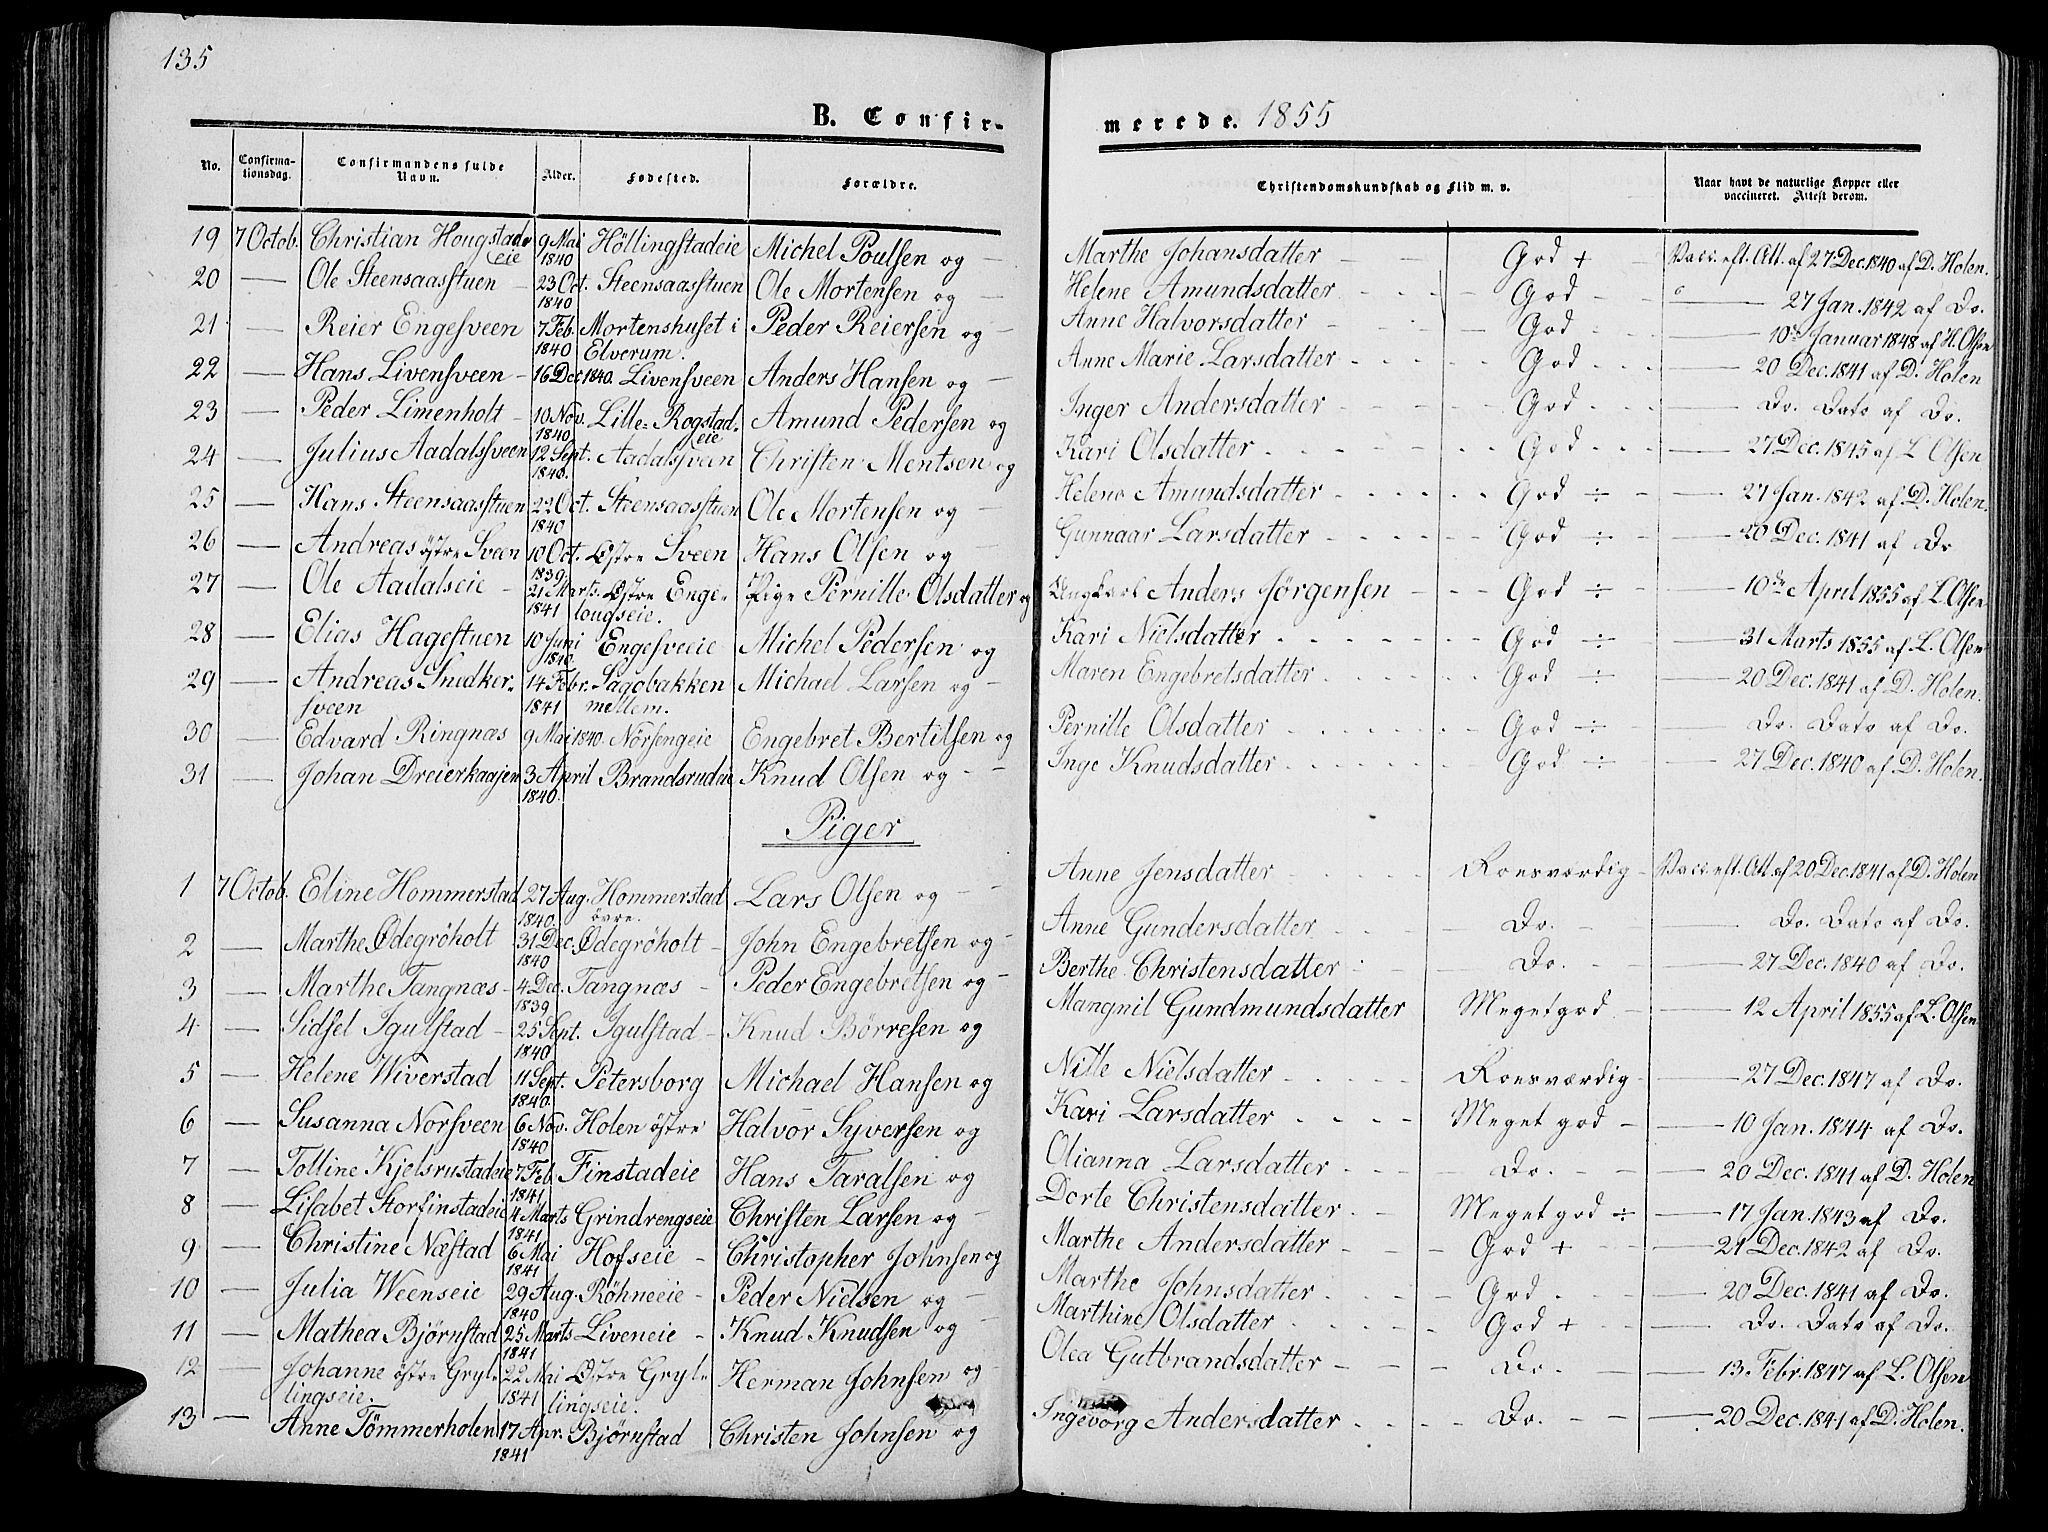 135
B. Confirmerede. 1855
No. Confirmationsdag. Confirmandens fulde Navn. Alder. Fødested. Forældre. Christendomskundskab og Flid m. v. Naar havt de naturlige Kopper eller vaccineret. Attest derom.
19 7 Octob. Christian Hougstadeie 9 Mai 1840 Höllingstadeie Michel Poulsen og — Marthe Johansdatter — God + Vacc. eft. Att. af 27 Dec. 1840 af D. Holen.
20 — Ole Steensaasstuen — 23 Oct. 1840 Steensaasstuen Ole Mortensen og — Helene Amundsdatter God — 27 Jan. 1842 af Do.
21 — Reier Engesveen 7 Feb. 1840 Mortenshuset i Elverum. Peder Reiersen og — Anne Halvorsdatter God — 10de Januar 1848 af H. Olsen
22 — Hans Livensveen — 16 Dec 1840. Livensveen Anders Hansen og — Anne Marie Larsdatter God — 20 Dec. 1841 af D. Holen
23 — Peder Limenholt — 10 Nov. 1840 Lille-Rogstadeie Amund Pedersen og Inger Andersdatter God — Do. Dato af Do.
24 — Julius Aadalsveen 12 Sept. 1840. Aadalsveen Christen Mentsen og Kari Olsdatter God — 27 Dec. 1845 af L Olsen
25 — Hans Steensaasstuen 22 Oct. 1840 Steensaasstuen Ole Mortensen og — Helene Amundsdatter God ÷ — 27 Jan. 1842 af D. Holen.
26 — Andreas östre Sveen 10 Oct. 1839 Østre Sveen Hans Olsen og — Gunnaar Larsdatter God ÷ — 20 Dec. 1841 af Do
27 — Ole Aadalseie — 21 Marts. 1841 Østre Engelougseie. Pige Pernille Olsdatter og Ungkarl Anders Jørgensen God ÷ — 10de April 1855 af L Olsen
28 — Elias Hagestuen 10 Juni 1840 Engesveeie Michel Pedersen og Kari Nielsdatter God ÷ — 31 Marts 1855 af L. Olsen
29 — Andreas Snedkersveen 14 Febr. 1841 Sagobakken mellem. Michael Larsen og — Maren Engebretsdatter God ÷ — 20 Dec. 1841 af D. Holen.
30 — Edvard Ringnæs 9 Mai 1840. Nörsengeie Engebret Bertilsen og Pernille Olsdatter God ÷ — Do. Dato af Do.
31 — Johan Dreierkaajen 3 April 1840. Brandsrudeie Knud Olsen og — Inge Knudsdatter God ÷ — 27 Dec. 1840 af D. Holen.
Piger
1 7 Octob. Eline Hommerstad 27 Aug. 1840. Hommerstad övre. Lars Olsen og — Anne Jensdatter Roesværdig — Vacc. eft. Att. af 20 Dec. 1841 af D. Holen
2 — Marthe Ödegröholt 31 Dec. 1840 Ödegröholt — John Engebretsen og — Anne Gundersdatter Do. — Do. Dato af Do.
3 — Marthe Tangnæs — 4 Dec. 1839 Tangnæs — Peder Engebretsen og — Berthe Christensdatter Do. — 27 Dec. 1840 af Do.
4 — Sidsel Igulstad — 25 Sept. 1840 Igulstad — Knud Börresen og Mangnil Gundmundsdatter Meget god — 12 April 1855 af L. Olsen
5 — Helene Wiverstad 11 Sept. 1840. Petersborg Michael Hansen og Nille Nielsdatter Roesværdig — 27 Dec. 1847 af Do.
6 — Susanna Norsveen 6 Nov. 1840 Holen östre Halvor Syversen og Kari Larsdatter Meget god — 10 Jan. 1844 af Do.
7 — Tolline Kjelsrustadeie 7 Feb. 1841 Finstadeie Hans Taralsen og Olianna Larsdatter Do. — 20 Dec. 1841 af D. Holen
8 — Lisabet Storfinstadeie 4 Marts 1841 Grindrengseie Christen Larsen og — Dorte Christensdatter Meget god ÷ — 17 Jan. 1843 af Do.
9 — Christine Næstad 6 Mai 1841 Hofseie — Christopher Johnsen og Marthe Andersdatter God + — 21 Dec. 1842 af Do.
10 — Julia Weenseie 29 Aug. 1840 Röhneeie — Peder Nielsen og — Marthe Johnsdatter God — 20 Dec. 1841 af Do.
11 — Mathea Bjørnstad 25 Marts 1841 Liveneie — Knud Knudsen og — Marthine Olsdatter God + — Do. Dato af Do.
12 — Johanne östre Gryllingseie. 22 Mai 1841 Østre Gryllingseie. Herman Johnsen og — Olea Gutbrandsdatter Do. — 13 Febr. 1847 af L. Olsen
13 — Anne Tömmerholen 17 Apr. 1841 Bjørnstad Christen Johnsen og Ingeborg Andersdatter Do. — 20 Dec. 1841 af D. Holen.